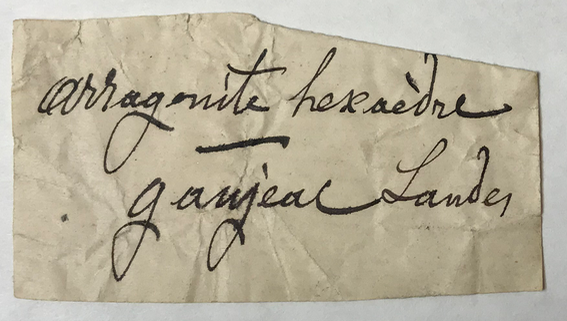 arragonite hexaèdre
gaujeac Landes